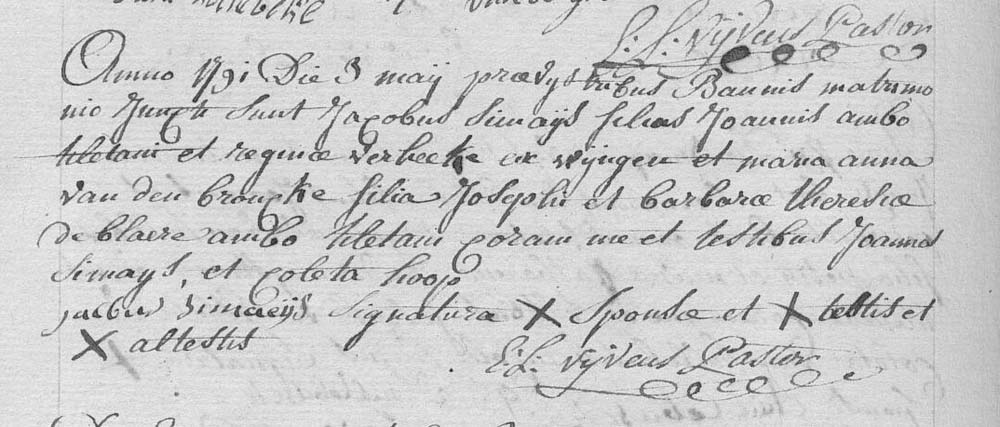 E: L: Vyveus Pastor
Anno 1791 Die 3 maij praevijs tribus Bannis matrimo
nio Juncti sunt Jacobus Simaijs filius Joannis ambo
tiletani et reginae verbeeke ex wijngen et maria anna
van den broucke filia Josephi et barbarae theresiae
de blaere ambo tiletani coram me et testibus Joannes
Simays, et coleta hoop
jacbus Simaeijs Signatura X Sponsae et X testis et
X altestis
E: L: Vyveus Pastor